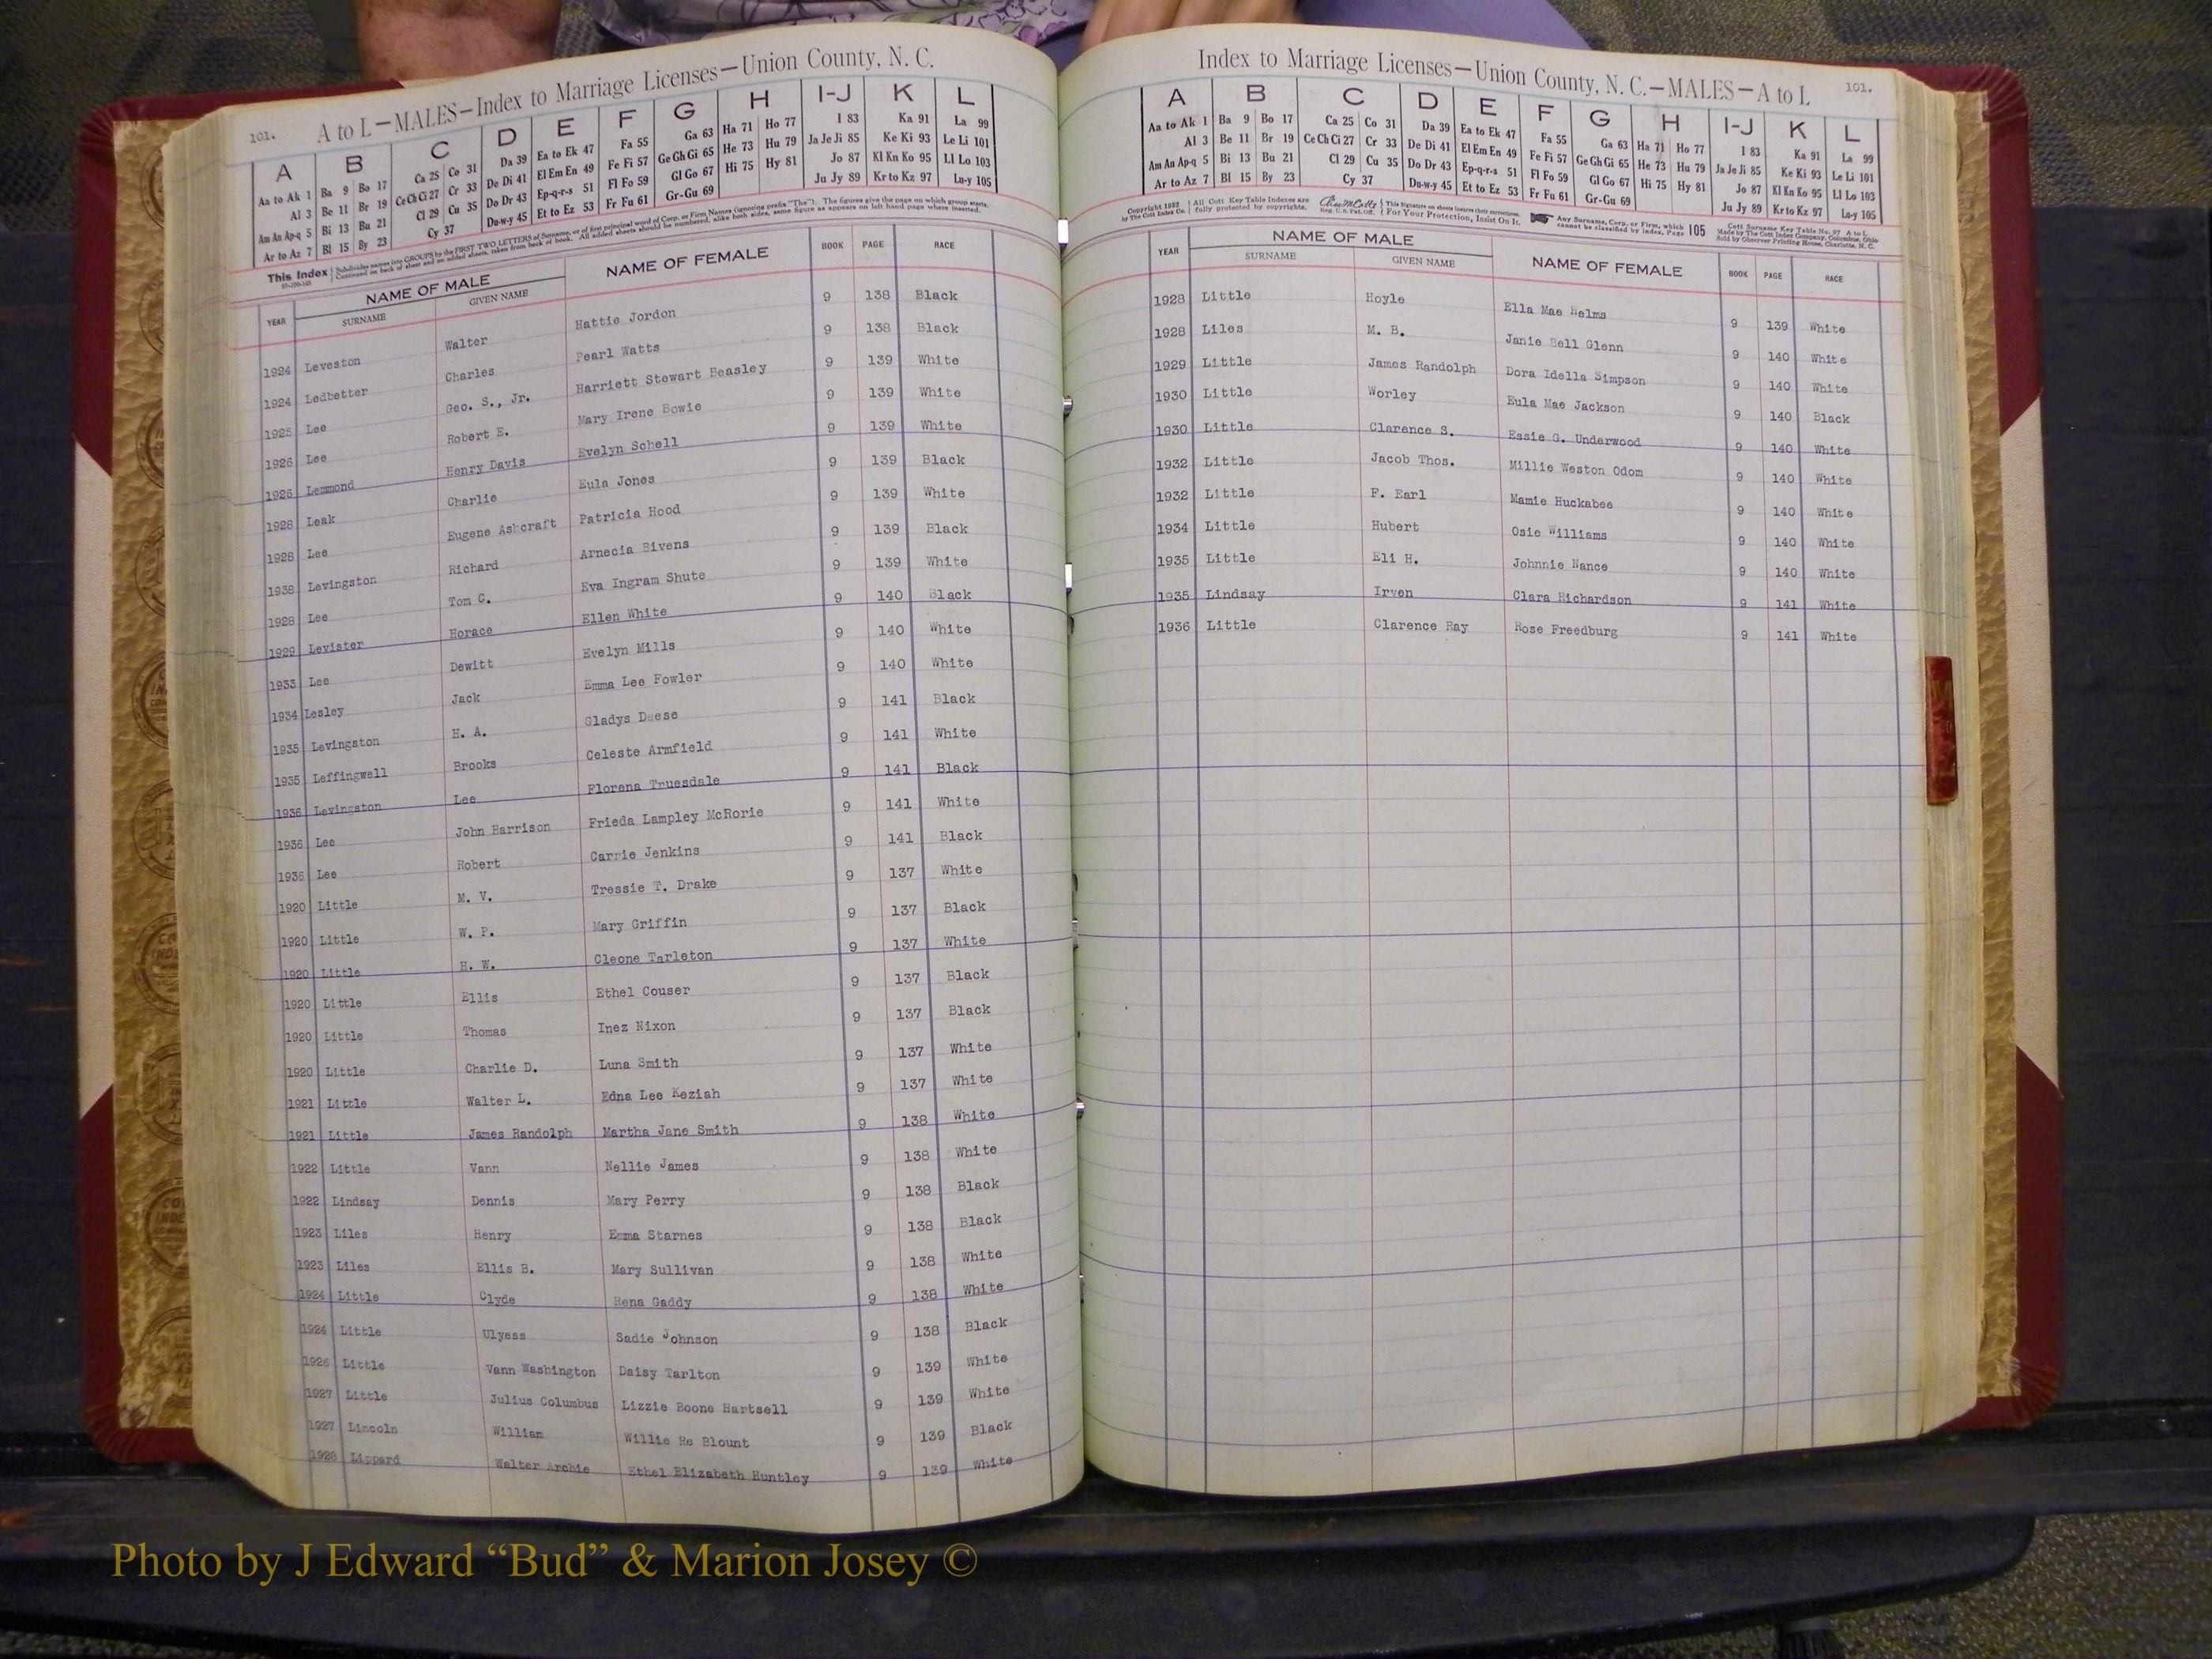 101. A to L—MALES—Index to Marriage Licenses—Union County, N. C.
A B C D E F G H I-J K L
Aa to Ak 1 Ba 9 Bo 17 Ca 25 Co 31 Da 39 Ea to Ek 47 Fa 55 Ga 63 Ha 71 Ho 77 I 83 Ka 91 La 99
Al 3 Be 11 Br 19 Ce Ch Ci 27 Cr 33 De Di 41 El Em En 49 Fe Fi 57 Ge Gh Gi 65 He 73 Hu 79 Ja Je Ji 85 Ke Ki 93 Le Li 101
Am An Ap-q 5 Bi 13 Bu 21 Cl 29 Cu 35 Do Dr 43 Ep-q-r-s 51 Fl Fo 59 Gl Go 67 Hi 75 Hy 81 Jo 87 Kl Kn Ko 95 Ll Lo 103
Ar to Az 7 Bl 15 By 23 Cy 37 Du-w-y 45 Et to Ez 53 Fr Fu 61 Gr-Gu 69 Ju Jy 89 Kr to Kz 97 Lu-y 105
This Index Subdivides names into GROUPS by the FIRST TWO LETTERS of Surname, or of first principal word of Corp. or Firm Names (ignoring prefix "The"). The figures give the page on which group starts.
Continued on back of sheet and on added sheets, taken from back of book. All added sheets should be numbered, alike both sides, same figure as appears on left hand page where inserted.
YEAR NAME OF MALE NAME OF FEMALE BOOK PAGE RACE
SURNAME GIVEN NAME
1924 Leveston Walter Hattie Jordon 9 138 Black
1924 Ledbetter Charles Pearl Watts 9 138 Black
1925 Lee Geo. S., Jr. Harriett Stewart Beasley 9 139 White
1926 Lee Robert E. Mary Irene Bowie 9 139 White
1926 Lemmond Henry Davis Evelyn Schell 9 139 White
1928 Leak Charlie Eula Jones 9 139 Black
1928 Lee Eugene Ashcraft Patricia Hood 9 139 White
1938 Levingston Richard Arnecia Bivens 9 139 Black
1928 Lee Tom C. Eva Ingram Shute 9 139 White
1929 Levister Horace Ellen White 9 140 Black
1933 Lee Dewitt Evelyn Mills 9 140 White
1934 Lesley Jack Emma Lee Fowler 9 140 White
1935 Levingston H. A. Gladys Deese 9 141 Black
1935 Leffingwell Brooks Celeste Armfield 9 141 White
1936 Levingston Lee Florena Truesdale 9 141 Black
1936 Lee John Harrison Frieda Lampley McRorie 9 141 White
1936 Lee Robert Carrie Jenkins 9 141 Black
1920 Little M. V. Tressie T. Drake 9 137 White
1920 Little W. P. Mary Griffin 9 137 Black
1920 Little H. W. Cleone Tarleton 9 137 White
1920 Little Ellis Ethel Couser 9 137 Black
1920 Little Thomas Inez Nixon 9 137 Black
1920 Little Charlie D. Luna Smith 9 137 White
1921 Little Walter L. Edna Lee Keziah 9 137 White
1921 Little James Randolph Martha Jane Smith 9 138 White
1922 Little Vann Nellie James 9 138 White
1922 Lindsay Dennis Mary Perry 9 138 Black
1923 Liles Henry Emma Starnes 9 138 Black
1923 Liles Ellis B. Mary Sullivan 9 138 White
1924 Little Clyde Rena Gaddy 9 138 White
1924 Little Ulyess Sadie Johnson 9 138 Black
1926 Little Vann Washington Daisy Tarlton 9 139 White
1927 Little Julius Columbus Lizzie Boone Hartsell 9 139 White
1927 Lincoln William Willie Re Blount 9 139 Black
1928 Lippard Walter Archie Ethel Elizabeth Huntley 9 139 White
Index to Marriage Licenses—Union County, N. C.—MALES—A to L 101.
A B C D E F G H I-J K L
Aa to Ak 1 Ba 9 Bo 17 Ca 25 Co 31 Da 39 Ea to Ek 47 Fa 55 Ga 63 Ha 71 Ho 77 I 83 Ka 91 La 99
Al 3 Be 11 Br 19 Ce Ch Ci 27 Cr 33 De Di 41 El Em En 49 Fe Fi 57 Ge Gh Gi 65 He 73 Hu 79 Ja Je Ji 85 Ke Ki 93 Le Li 101
Am An Ap-q 5 Bi 13 Bu 21 Cl 29 Cu 35 Do Dr 43 Ep-q-r-s 51 Fl Fo 59 Gl Go 67 Hi 75 Hy 81 Jo 87 Kl Kn Ko 95 Ll Lo 103
Ar to Az 7 Bl 15 By 23 Cy 37 Du-w-y 45 Et to Ez 53 Fr Fu 61 Gr-Gu 69 Ju Jy 89 Kr to Kz 97 Lu-y 105
Copyright 1932 by The Cott Index Co. All Cott Key Table Indexes are fully protected by copyrights. Reg. U.S. Pat. Off. This Signature on sheets insures their correctness. For Your Protection, Insist On It. Any Surname, Corp. or Firm, which cannot be classified by index, Page 105 Cott Surname Key Table No. 97 A to L
Made by The Cott Index Company, Columbus, Ohio
Sold by Observer Printing House, Charlotte, N. C.
YEAR NAME OF MALE NAME OF FEMALE BOOK PAGE RACE
SURNAME GIVEN NAME
1928 Little Hoyle Ella Mae Helms 9 139 White
1928 Liles M. B. Janie Bell Glenn 9 140 White
1929 Little James Randolph Dora Idella Simpson 9 140 White
1930 Little Worley Eula Mae Jackson 9 140 Black
1930 Little Clarence S. Essie G. Underwood 9 140 White
1932 Little Jacob Thos. Millie Weston Odom 9 140 White
1932 Little F. Earl Mamie Huckabee 9 140 White
1934 Little Hubert Osie Williams 9 140 White
1935 Little Eli H. Johnnie Nance 9 140 White
1935 Lindsay Irven Clara Richardson 9 141 White
1936 Little Clarence Ray Rose Freedburg 9 141 White
Photo by J Edward “Bud” & Marion Josey ©